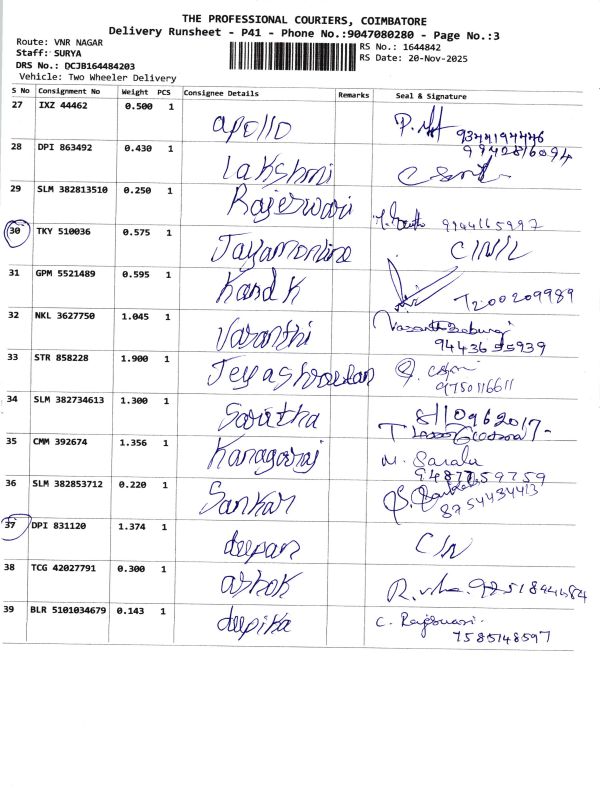 THE PROFESSIONAL COURIERS, COIMBATORE
Delivery Runsheet - P41 - Phone No.:9047080280 - Page No.:3
Route: VNR NAGAR
RS No.: 1644842
Staff: SURYA
RS Date: 20-Nov-2025
DRS No.: DCJB164484203
Vehicle: Two Wheeler Delivery
S No Consignment No Weight PCS Consignee Details Remarks Seal & Signature
27 IXZ 44462 0.500 1 apollo 9344194446
28 DPI 863492 0.430 1 Lakshmi 9942816094
29 SLM 382813510 0.250 1 Rajeswari 9944165997
30 TKY 510036 0.575 1
31 GPM 5521489 0.595 1 Kand K 7200209989
32 NKL 3627750 1.045 1 Vasanthi
9443655939
33 STR 858228 1.900 1
9750116611
34 SLM 382734613 1.300 1 Saritha 8110962017-
35 CMM 392674 1.356 1 Kanagaraj M. Sarala
9487759759
36 SLM 382853712 0.220 1 Sankar
8754434413
37 DPI 831120 1.374 1 deepan
38 TCG 42027791 0.300 1 ashok
39 BLR 5101034679 0.143 1 deepika C. Rajeswari
7585148597